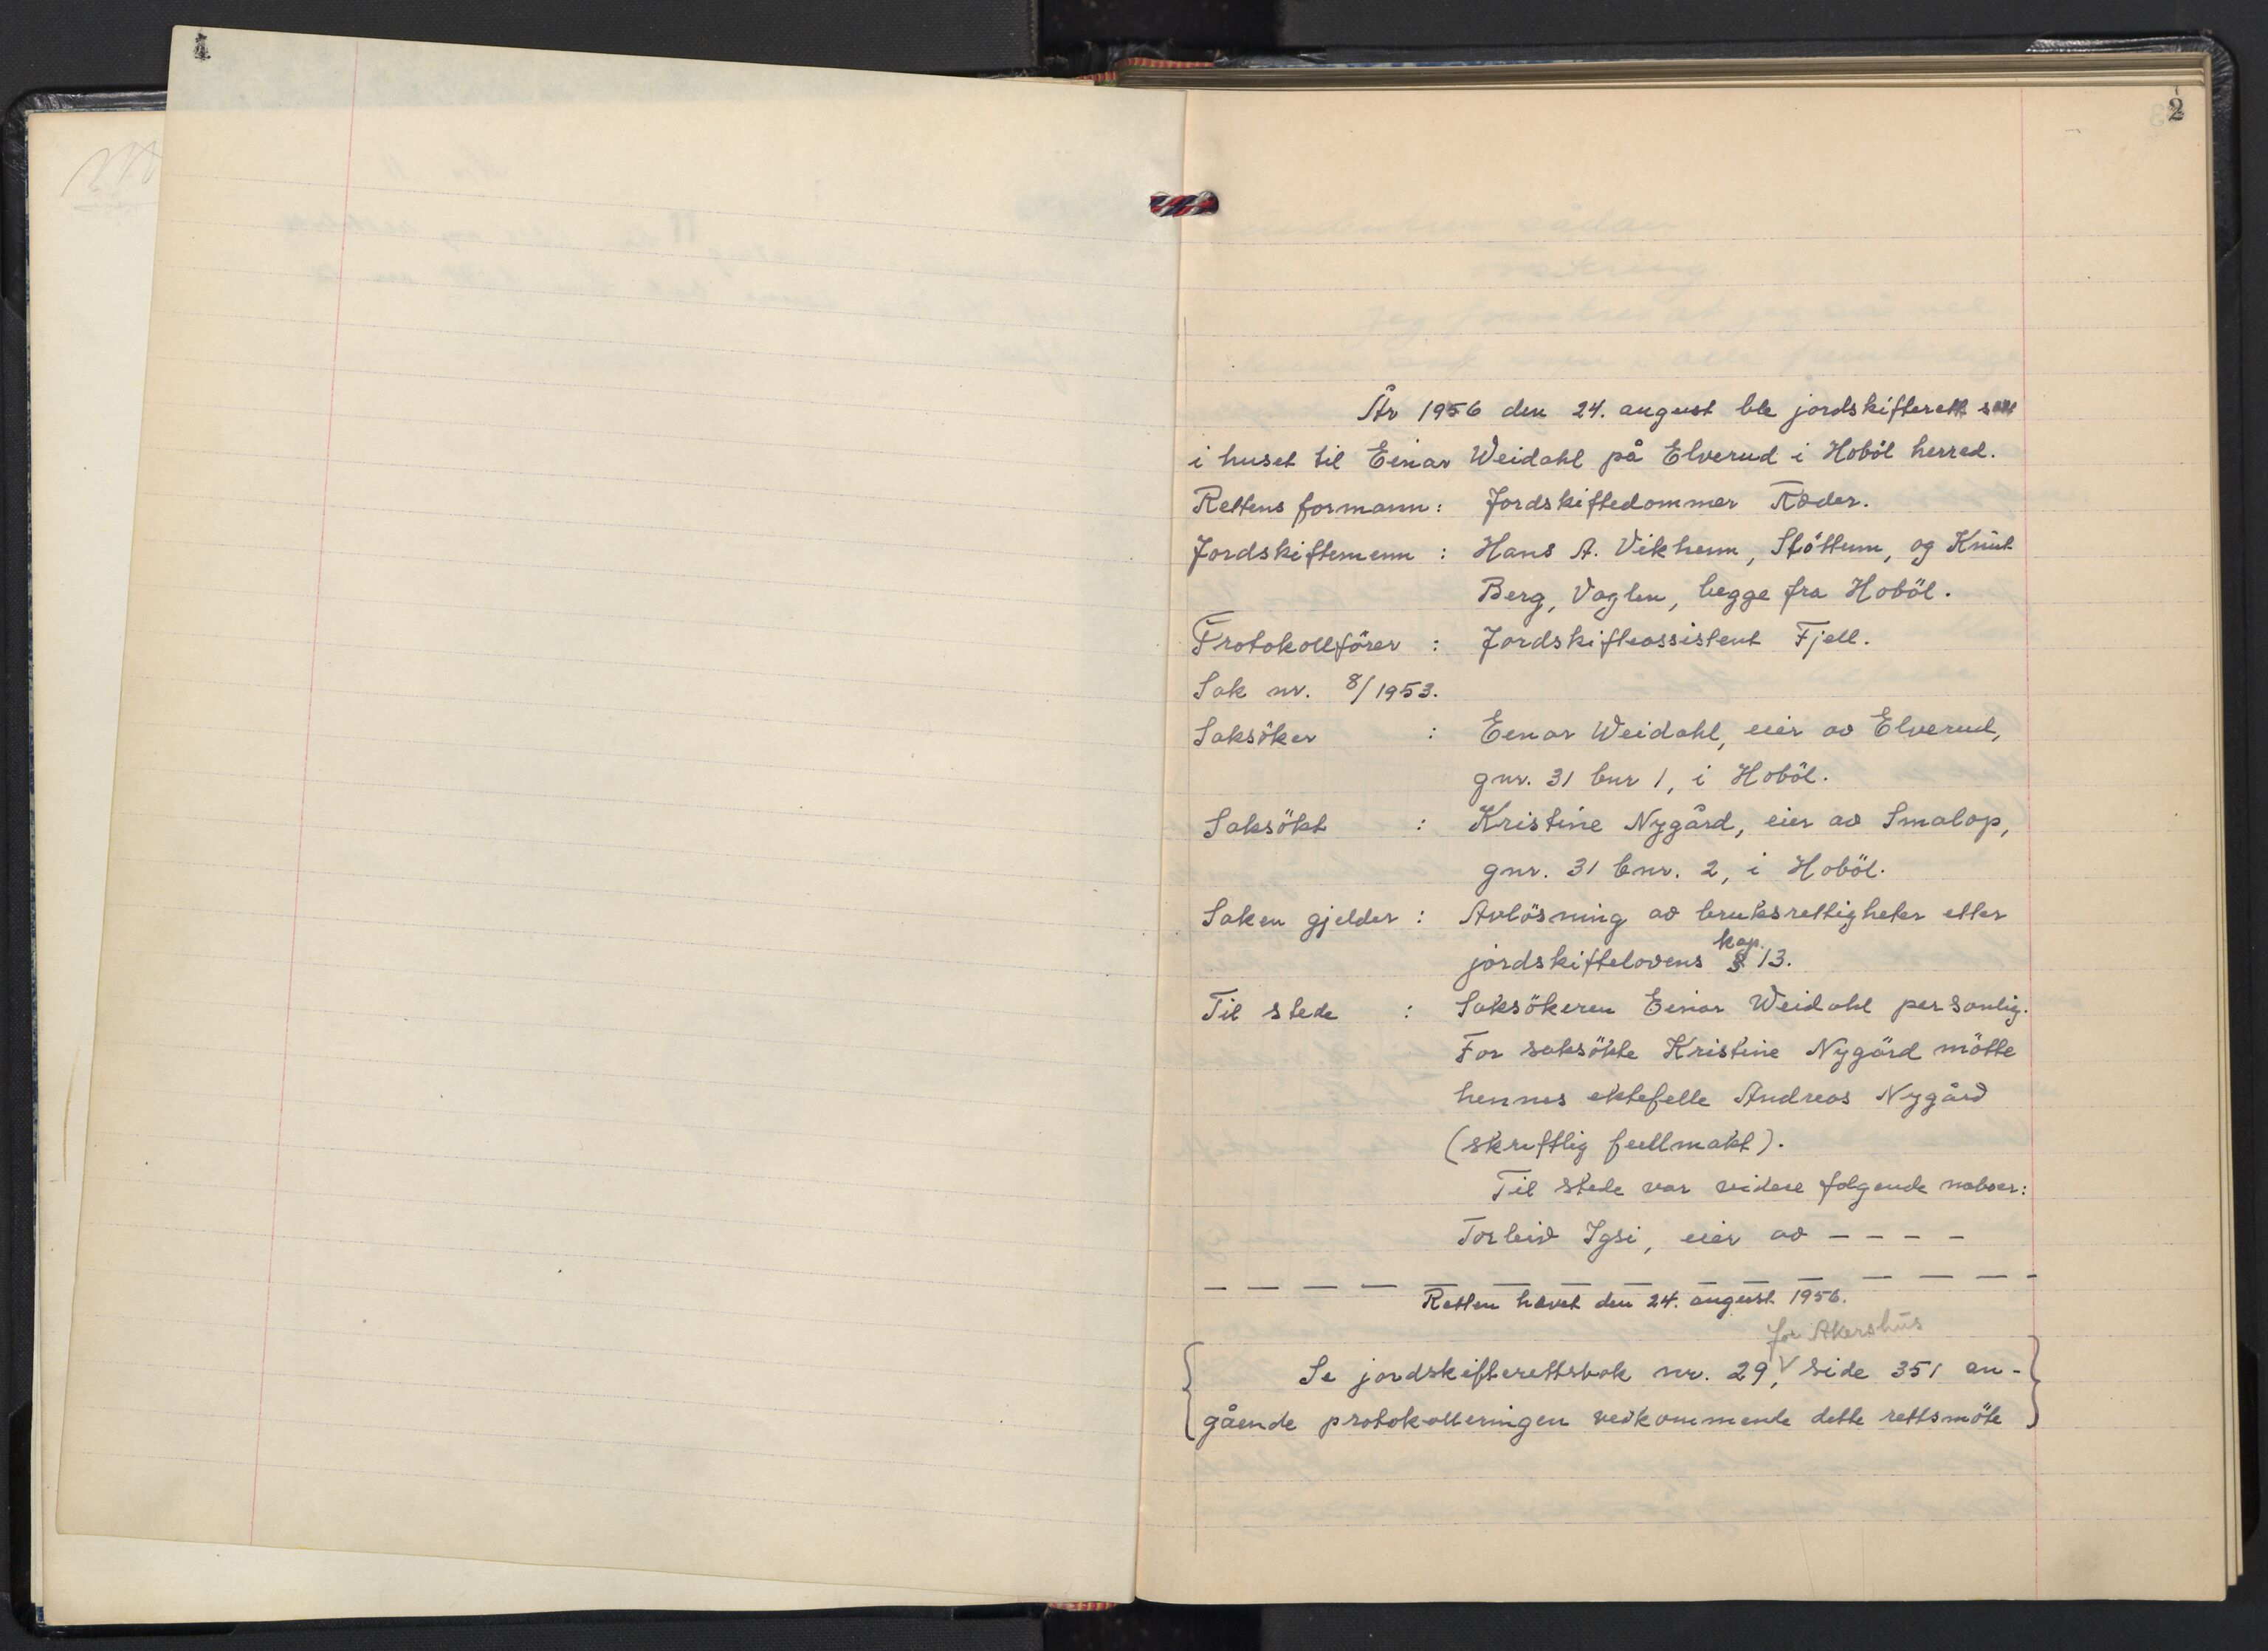 2
År 1956 den 24. august ble jordskifterett satt
i huset til Einar Weidahl på Elverud i Hobøl herred.
Rettens formann: Jordskiftedommer Ræder.
Jordskiftemenn : Hans A. Vikhenn, Støttum, og Knut
Berg, Vaglen, begge fra Hobøl.
Protokollfører : Jordskifteassistent Fjell.
Sak nr. 8/1953.
Saksöker : Einar Weidahl, eier av Elverud,
gnr. 31 bnr 1, i Hoböl.
Saksökt : Kristine Nygård, eier av Smalop,
gnr. 31 bnr. 2, i Hoböl.
Saken gjelder : Avlösning av bruksrettigheter etter
kap.
jordskiftelovens § 13.
Til stede : Saksökeren Einar Weidahl personlig.
For saksökte Kristine Nygård mötte
hennes ektefelle Andreas Nygård
(skriftlig fullmakt).
Til stede var videre følgende naboer:
Torleiv Igsi, eier av – – – –
– – – – – – – – – – – – – – –
Retten hævet den 24. august 1956.
for Akershus
{ Se jordskifterettsbok nr. 29, V side 351 an- }
gående protokolleringen vedkommende dette rettsmöte